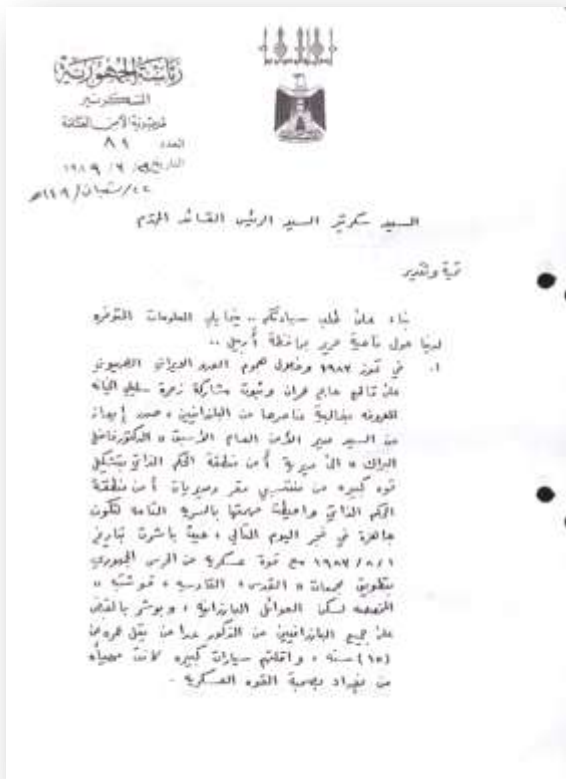 رئاسة الجمهورية
السكرتير
مديرية الأمن العامة
العدد ٨٩
التاريخ / ٣ / ١٩٨٩
٢٢ / شعبان / ١٤٠٩هـ
السيد سكرتير السيد الرئيس القائد المحترم
تحية وتقدير
بناء على طلب سيادتكم .. يلي المعلومات المتوفرة
لدينا حول ناحية حرير بمحافظة أربيل ..
١. في تموز ١٩٨٣ وخلال هجوم العدو الايراني الصهيوني
على قاطع حاج عمران وثبوت مشاركة زمرة سليلي الخيانه
عناصرها من البارزانيين ، صدر إيعاز
من السيد مدير الأمن العام الأسبق « الدكتور فاضل
البراك » الى مديرية أمن منطقة الحكم الذاتي بتشكيل
قوة كبيرة من منتسبي مقر ومديريات أمن منطقة
الحكم الذاتي واحيطت مهمتها بالسرية التامة لتكون
جاهزة في فجر اليوم التالي ، حيث باشرت بتاريخ
١/٨/١٩٨٣ مع قوة عسكرية من الحرس الجمهوري
بتطويق مجمعات « القدس ، القادسيه ، قوشتبه »
المخصصه لسكن العوائل البارزانية ، وبوشر بالقبض
على جميع البارزانيين من الذكور عدا من يقل عمره عن
(١٥) سنه ، واقلتهم سيارات كبيره كانت مهيأه
من بغداد بصحبة القوه العسكريه .